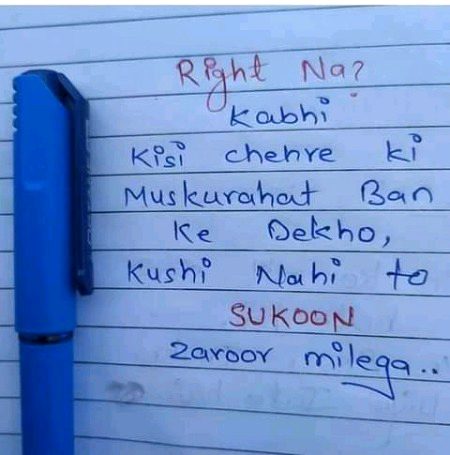 Right Na?
Kabhi
Kisi chehre ki
Muskurahat Ban
Ke Dekho,
Kushi Nahi to
SUKOON
Zaroor milega..